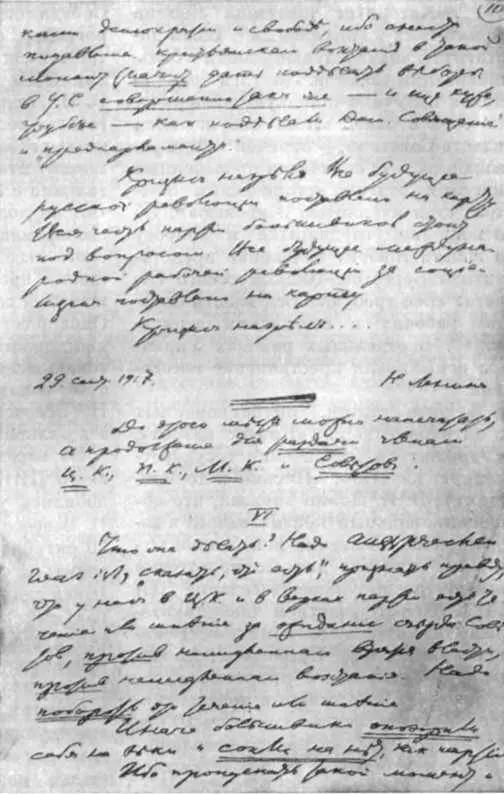 10
демократии и свободы, ибо снести
подавление крестьянского восстания в такой
момент значит дать подделать выборы
в У.С. совершенно так же — и еще хуже,
грубее — как подделали Дем. Совещание
и "предпарламент".
Кризис назрел. Все будущее
русской революции поставлено на карту.
Вся честь партии большевиков стоит
под вопросом. Все будущее междуна
родной рабочей революции за социа
лизм поставлено на карту.
Кризис назрел....
29 сент. 1917. Н Ленин
До этого места можно напечатать,
а продолжение для раздачи членам
Ц. К., П. К., М. К. и Советов.
VI
Что же делать? Надо aussprechen
was ist, "сказать, что есть", признать правду,
что у нас в ЦК и в верхах партии есть те
чение или мнение за ожидание съезда Сове
тов, против немедленного взятия власти,
против немедленного восстания. Надо
побороть это течение или мнение.
Иначе большевики опозорили
себя на веки и сошли на нет, как партия.
Ибо пропускать такой момент и